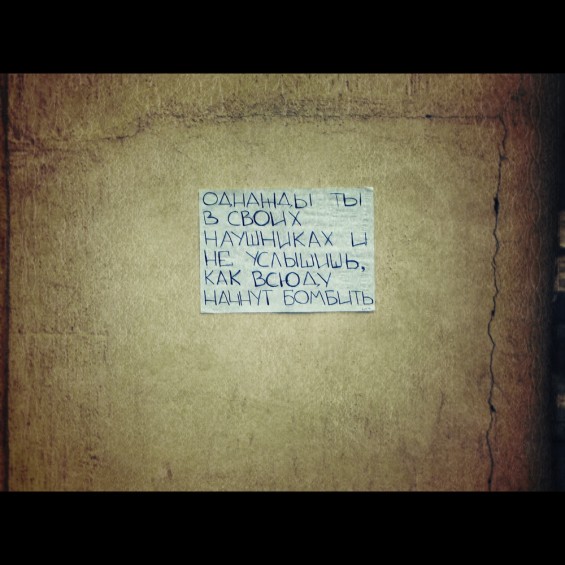 ОДНАЖДЫ ТЫ
В СВОИХ
НАУШНИКАХ И
НЕ УСЛЫШИШЬ,
КАК ВСЮДУ
НАЧНУТ БОМБИТЬ